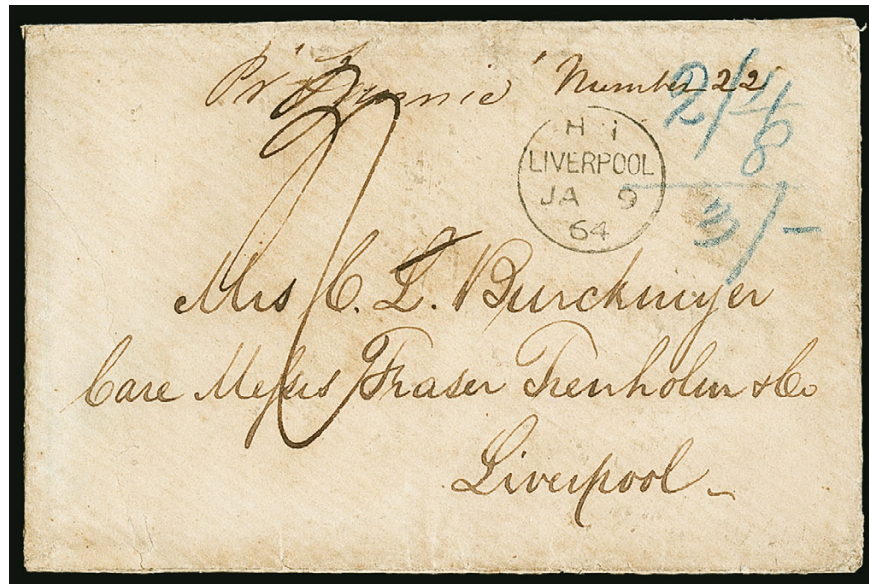 Pr "Fannie" Number 22
2/4
8
H 1
LIVERPOOL
JA 9
64
3/-
Mrs C. L. Burckmyer
Care Messrs Fraser Trenholm & Co
Liverpool